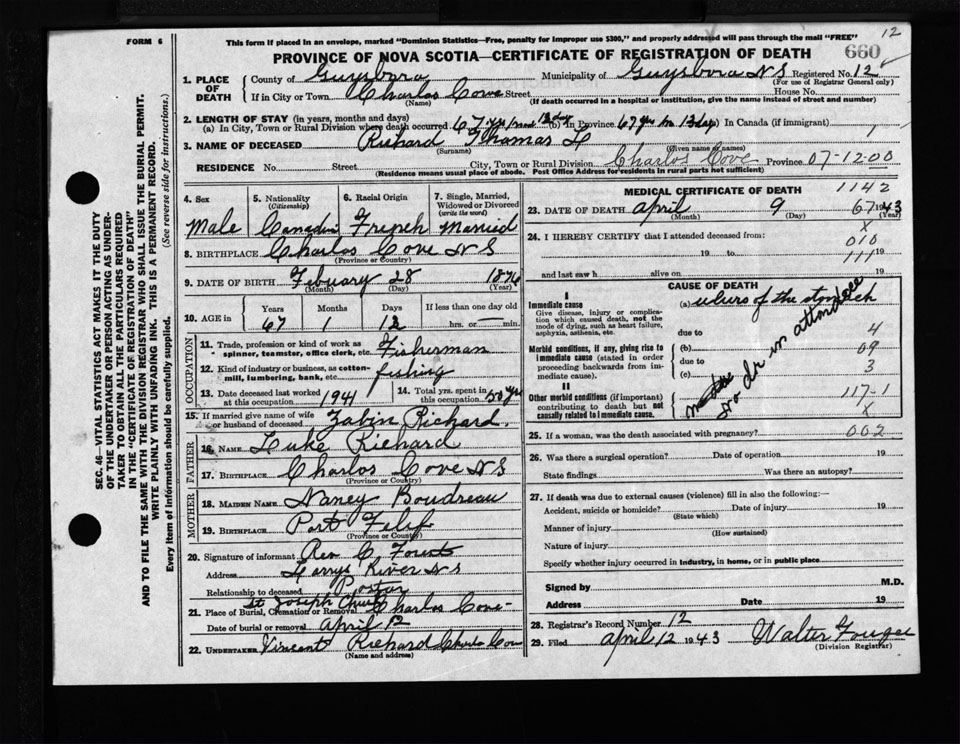 12
FORM 6
This form if placed in an envelope, marked "Dominion Statistics—Free, penalty for improper use $300," and properly addressed will pass through the mail "FREE"
PROVINCE OF NOVA SCOTIA—CERTIFICATE OF REGISTRATION OF DEATH
660
SEC. 46—VITAL STATISTICS ACT MAKES IT THE DUTY
OF THE UNDERTAKER OR PERSON ACTING AS UNDER-
TAKER TO OBTAIN ALL THE PARTICULARS REQUIRED
IN THE "CERTIFICATE OF REGISTRATION OF DEATH"
AND TO FILE THE SAME WITH THE DIVISION REGISTRAR WHO SHALL ISSUE THE BURIAL PERMIT.
WRITE PLAINLY WITH UNFADING INK. THIS IS A PERMANENT RECORD.
Every item of information should be carefully supplied. (See reverse side for instructions.)
1. PLACE OF DEATH
County of Guysboro Municipality of Guysboro N S Registered No. 12
(For use of Registrar General only)
If in City or Town Charlos Cove Street House No.
(Name) (If death occurred in a hospital or institution, give the name instead of street and number)
2. LENGTH OF STAY (in years, months and days)
(a) In City, Town or Rural Division where death occurred 67 yrs 1 m 12 dy (b) In Province 67 yrs 1 m 13 days (c) In Canada (if immigrant)
3. NAME OF DECEASED Richard Thomas L
(Surname) (Given name or names)
RESIDENCE No. Street City, Town or Rural Division Charlos Cove Province 07-12-00
(Residence means usual place of abode. Post Office Address for residents in rural parts not sufficient)
4. Sex
Male
5. Nationality (Citizenship)
Canadin
6. Racial Origin
Frinch
7. Single, Married, Widowed or Divorced (write the word)
Married
8. BIRTHPLACE Charlos Cove N S
(Province or Country)
9. DATE OF BIRTH Febuary 28 1876
(Month) (Day) (Year)
10. AGE in Years Months Days If less than one day old
67 1 12 hrs. or min.
OCCUPATION
11. Trade, profession or kind of work as spinner, teamster, office clerk, etc. Fisherman
12. Kind of industry or business, as cotton-mill, lumbering, bank, etc. fishing
13. Date deceased last worked at this occupation 1941
14. Total yrs. spent in this occupation 50 yrs
15. If married give name of wife or husband of deceased Zabin Richard.
FATHER
16. Name Luke Richard
17. BIRTHPLACE Charlos Cove N S
(Province or Country)
MOTHER
18. MAIDEN NAME Nancy Boudreau
19. BIRTHPLACE Port Felif
(Province or Country)
20. Signature of informant Rev C Forest
Address Larrys River N S
Relationship to deceased Pastor
21. Place of Burial, Cremation or Removal St Joseph Church Charlos Cove
Date of burial or removal April 12
22. UNDERTAKER Vincent Richard Charlos Cove
(Name and address)
MEDICAL CERTIFICATE OF DEATH 1142
23. DATE OF DEATH April 9 67 1943
(Month) (Day) (Year)
X
24. I HEREBY CERTIFY that I attended deceased from: 010
19 to 111 19
and last saw h alive on 19
CAUSE OF DEATH
I
Immediate cause
Give disease, injury or complication which caused death, not the mode of dying, such as heart failure, asphyxia, asthenia, etc.
(a) ulurs of the stomach
due to 4
Morbid conditions, if any, giving rise to immediate cause (stated in order proceeding backwards from immediate cause).
(b) 09
due to 3
(c)
no dr in attendace
II
Other morbid conditions (if important) contributing to death but not causally related to immediate cause.
117-1
X
25. If a woman, was the death associated with pregnancy? 002
26. Was there a surgical operation? Date of operation 19
State findings Was there an autopsy?
27. If death was due to external causes (violence) fill in also the following:—
Accident, suicide or homicide? Date of injury 19
(State which)
Manner of injury
(How sustained)
Nature of injury
Specify whether injury occurred in industry, in home, or in public place
Signed by M.D.
Address Date 19
28. Registrar's Record Number 12
29. Filed April 12 1943 Walter Fougere
(Division Registrar)